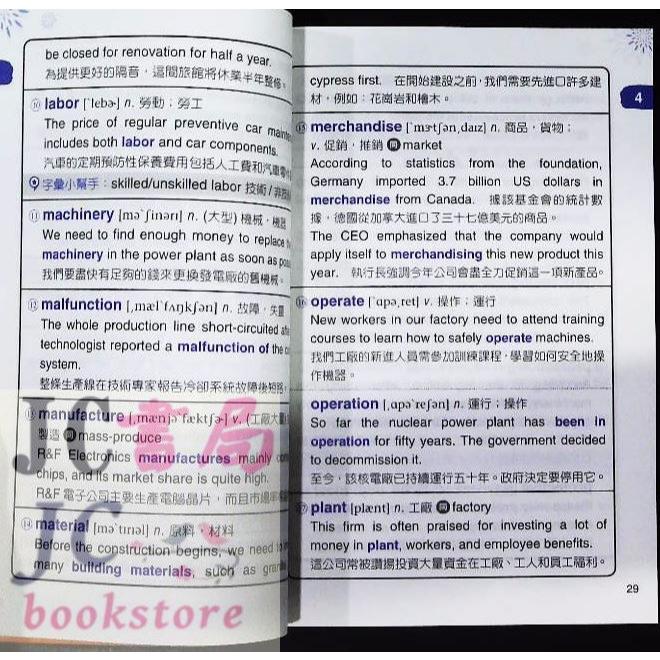 be closed for renovation for half a year.
為提供更好的隔音，這間旅館將休業半年整修。
⑩ labor [ˋlebɚ] n. 勞動；勞工
The price of regular preventive car
includes both labor and car components.
汽車的定期預防性保養費用包括人工費和汽車零
字彙小幫手：skilled/unskilled labor 技術/
⑪ machinery [məˋʃinərɪ] n. (大型) 機械，機器
We need to find enough money to replace
machinery in the power plant as soon as
我們要盡快有足夠的錢來更換發電廠的舊機械。
⑫ malfunction [ˏmælˋfʌŋkʃən] n. 故障，失靈
The whole production line short-circuited
technologist reported a malfunction of the
system.
整條生產線在技術專家報告冷卻系統故障後短路
⑬ manufacture [ˏmænjəˋfæktʃɚ] v. (工廠大量
製造 同 mass-produce
R&F Electronics manufactures mainly
chips, and its market share is quite high.
R&F 電子公司主要生產電腦晶片，而且市場
⑭ material [məˋtɪrɪəl] n. 原料，材料
Before the construction begins, we need
many building materials, such as
JC書局
JC
bookstore
cypress first. 在開始建設之前，我們需要先進口許多建
材，例如：花崗岩和檜木。
4
⑮ merchandise [ˋmɝtʃənˏdaɪz] n. 商品，貨物；
v. 促銷，推銷 同 market
According to statistics from the foundation,
Germany imported 3.7 billion US dollars in
merchandise from Canada. 據該基金會的統計數
據，德國從加拿大進口了三十七億美元的商品。
The CEO emphasized that the company would
apply itself to merchandising this new product this
year. 執行長強調今年公司會盡全力促銷這一項新產品。
⑯ operate [ˋɑpəˏret] v. 操作；運行
New workers in our factory need to attend training
courses to learn how to safely operate machines.
我們工廠的新進人員需參加訓練課程，學習如何安全地操
作機器。
operation [ˏɑpəˋreʃən] n. 運行；操作
So far the nuclear power plant has been in
operation for fifty years. The government decided
to decommission it.
至今，該核電廠已持續運行五十年。政府決定要停用它。
⑰ plant [plænt] n. 工廠 同 factory
This firm is often praised for investing a lot of
money in plant, workers, and employee benefits.
這公司常被讚揚投資大量資金在工廠、工人和員工福利。
29